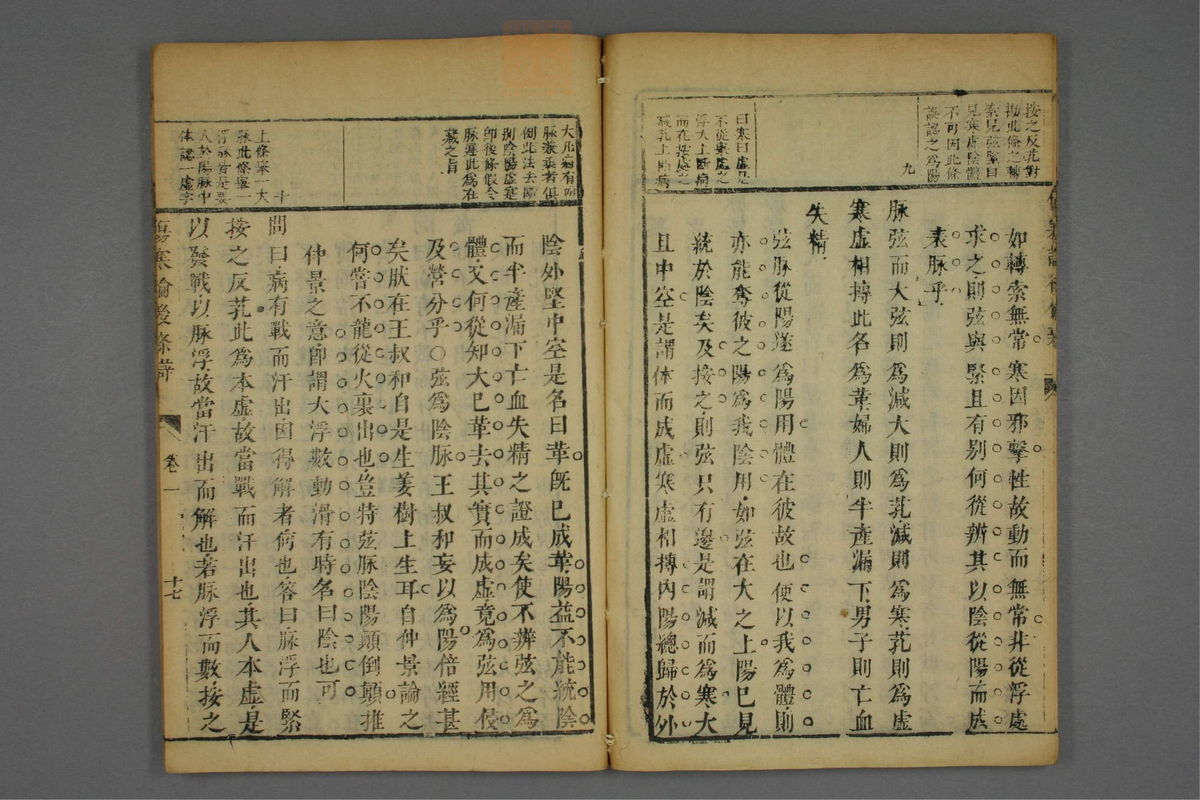 按之反芤對
拗此條之轉
索見弦緊自
見寒虛陰體
不可因此條
誤認之為陽
九
曰寒曰虛是
不從單處之
浮大上斷病
而在按處之
減芤上斷病
如轉索無常寒因邪擊牲故動而無常非從浮處
求之則弦與緊且有別何從辨其以陰從陽而成
表脉乎
脉弦而大弦則為減大則為芤減則為寒芤則為虛
寒虛相摶此名為革婦人則半產漏下男子則亡血
失精
弦脉從陽遂為陽用體在彼故也便以我為體則
亦能奪彼之陽為我陰用如弦在大之上陽已見
統於陰矣及按之則弦只有邊是謂減而為寒大
且中空是謂体而成虛寒虛相摶內陽總歸於外
大凡病有兩
脉激乘者俱
倒此法去斷
測陰陽虛寔
即後條假令
脉遲此為在
藏之旨
十
上條寒一大
脉此條舉一
浮脉皆是要
人於陽脉中
体認一虛字
陰外堅中空是名曰革既已成革陽益不能統陰
而半產漏下亡血失精之證成矣使不辨弦之為
體又何從知大已革去其實而成虛竟為弦用使
及營分乎○弦為陰脉王叔和妄以為陽倍經甚
矣朕在王叔和自是生姜樹上生耳自仲景論之
何嘗不龍從火裏出也豈特弦脉陰陽顛倒顛推
仲景之意即謂大浮數動滑有時名曰陰也可
問曰病有戰而汗出因得解者何也答曰脉浮而緊
按之反芤此為本虛故當戰而汗出也其人本虛是
以發戰以脉浮故當汗出而解也若脉浮而數按之
傷寒論後條辨
卷一
十七